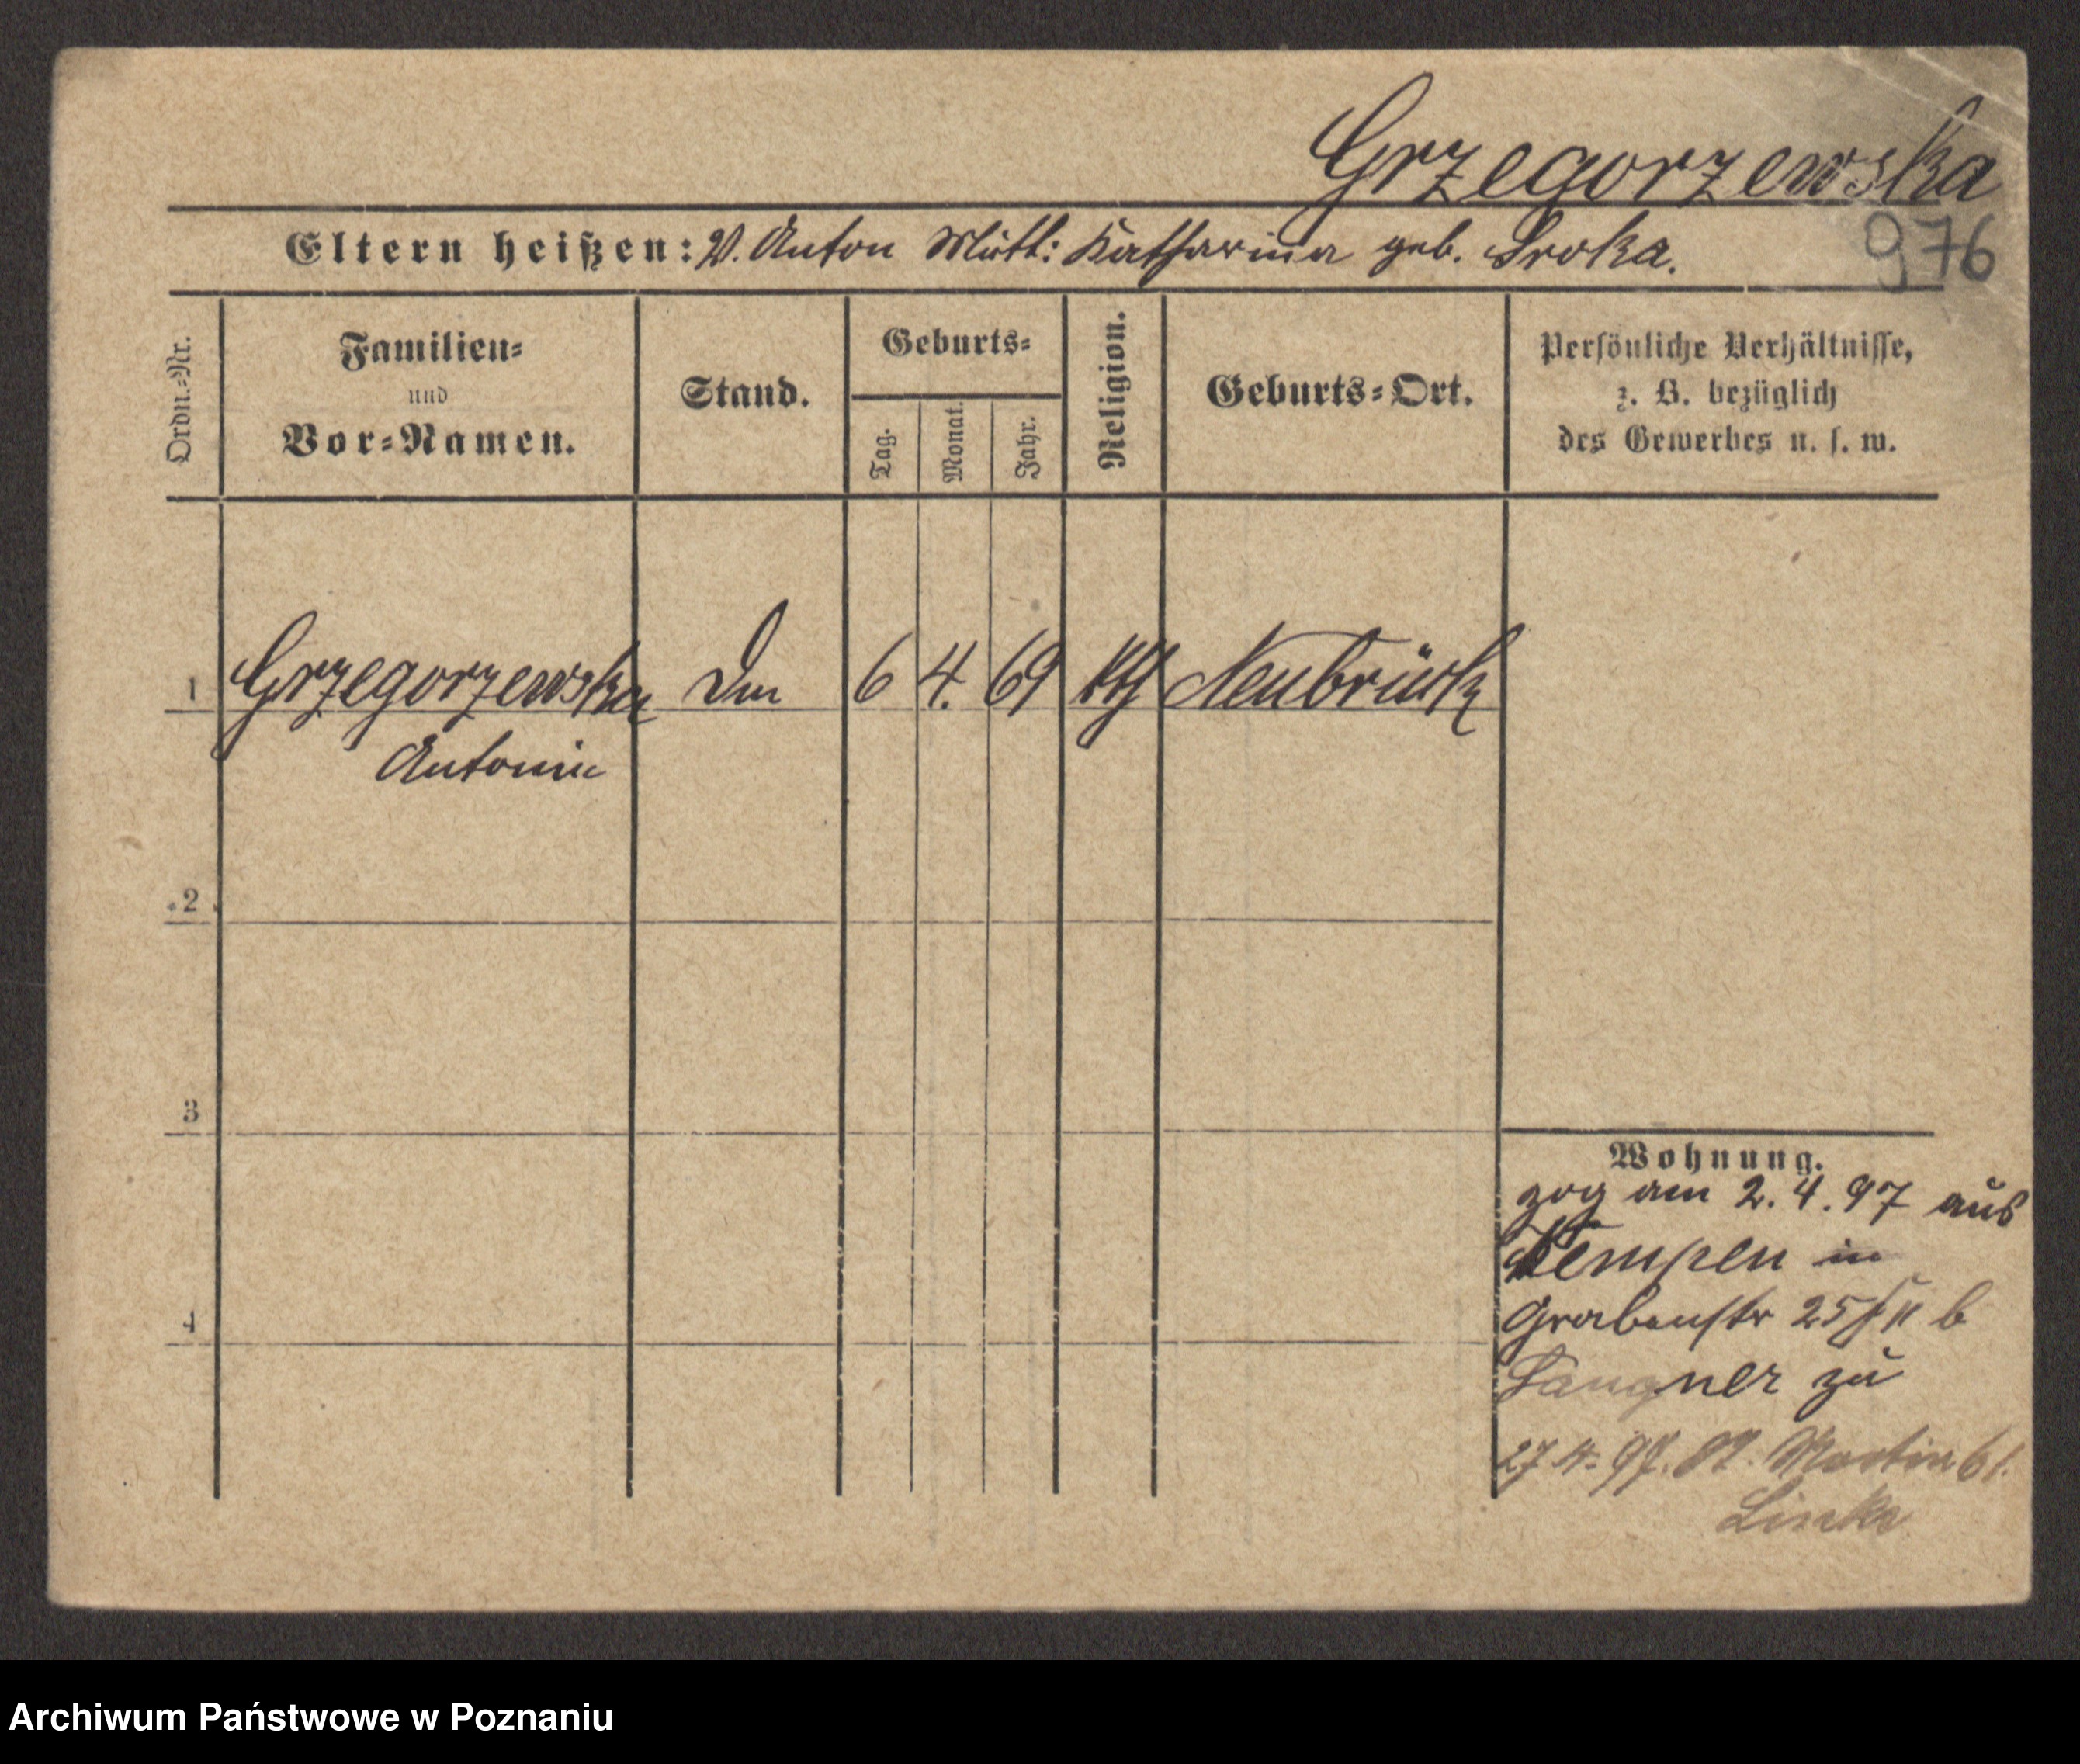 Grzegorzewska
Eltern heißen: V. Anton Mutt: Katharina geb. Sroka.
976
Ordn.=Nr.
Familien=
und
Vor=Namen.
Stand.
Geburts=
Tag.
Monat.
Jahr.
Religion.
Geburts=Ort.
Persönliche Verhältnisse,
z. B. bezüglich
des Gewerbes u. s. w.
1 Grzegorzewska 6 4. 69 kth Neubrück
Antonie
2
3
4
Wohnung.
zog am 2.4.97 aus
Kempen in
Grabenstr 25 II b
Langner zu
27 4. 97. St. Martin 61.
Linke
Archiwum Państwowe w Poznaniu